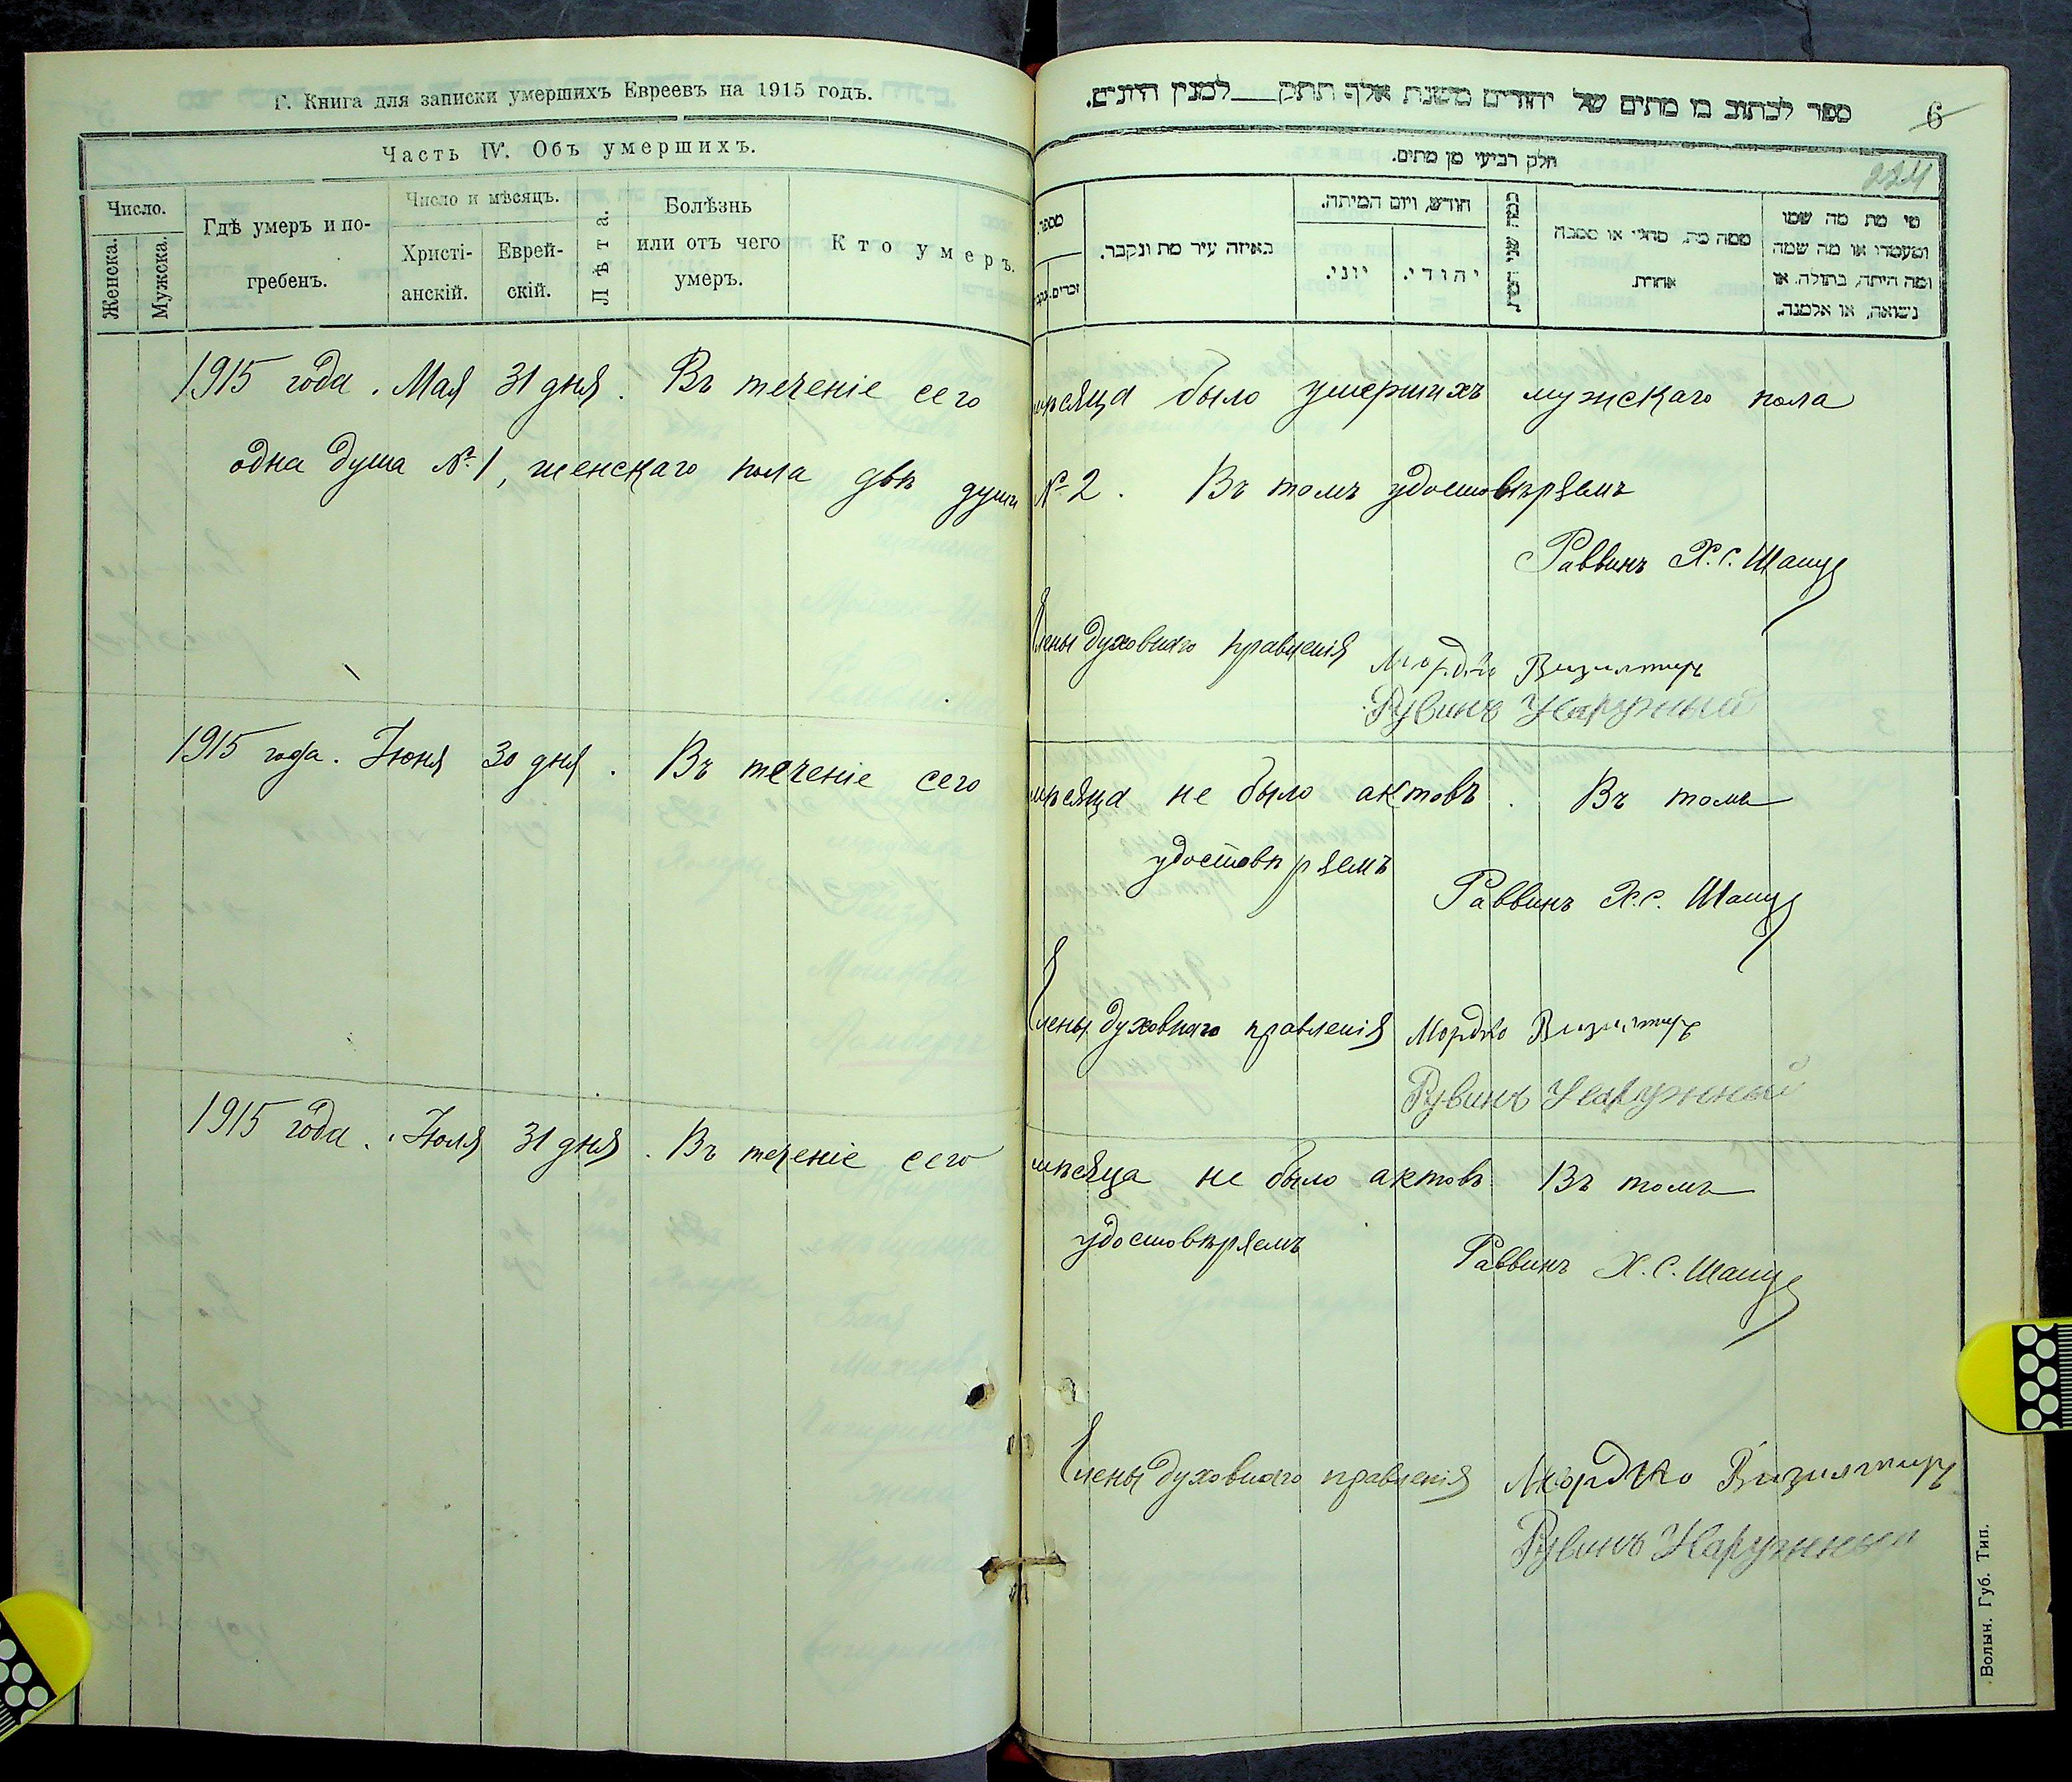 Г. Книга для записки умершихъ Евреевъ на 1915 годъ.
Часть IV. Объ умершихъ.
Число.
Женска.
Мужска.
Гдѣ умеръ и по-
гребенъ.
Число и мѣсяцъ.
Христі-
анскій.
Еврей-
скій.
Лѣта.
Болѣзнь
или отъ чего
умеръ.
Кто умеръ.
ספר לכתוב בו מתים של יהודים משנת אלף תתק___למנין היונים.
6
224
חלק רביעי מן מתים.
מספר
זכרים.
באיזה עיר מת ונקבר.
חודש, ויום המיתה.
יוני.
יהודי.
כמה שני
ממה מת, מחלי או מסבה
אחרת.
מי מת מה שמו
ומעמדו או מה שמה
ומה היתה, בתולה, או
נשואה, או אלמנה.
1915 года. Мая 31 дня. Въ теченіе сего мѣсяца было умершихъ мужскаго пола
одна душа № 1, женскаго пола двѣ души № 2. Въ томъ удостовѣряемъ
Раввинъ Х. С. Шапу
Члены духовнаго правленія Мордко
Рувинъ Наружный
1915 года. Іюня 30 дня. Въ теченіе сего мѣсяца не было актовъ. Въ томъ
удостовѣряемъ
Раввинъ Х. С. Шапу
Члены духовнаго правленія Мордко
Рувинъ Наружный
1915 года. Іюля 31 дня. Въ теченіе сего мѣсяца не было актовъ Въ томъ
удостовѣряемъ
Раввинъ Х. С. Шапу
Члены духовнаго правленія Мордко
Рувинъ Наружный
Волын. Губ. Тип.